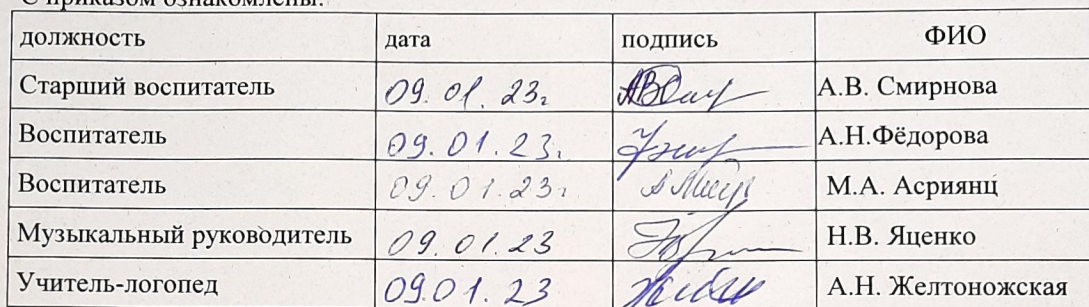 С приказом ознакомлены:
должность дата подпись ФИО
Старший воспитатель 09.01.23г А.В. Смирнова
Воспитатель 09.01.23г А.Н.Фёдорова
Воспитатель 09.01.23г М.А. Асриянц
Музыкальный руководитель 09.01.23 Н.В. Яценко
Учитель-логопед 09.01.23 А.Н. Желтоножская